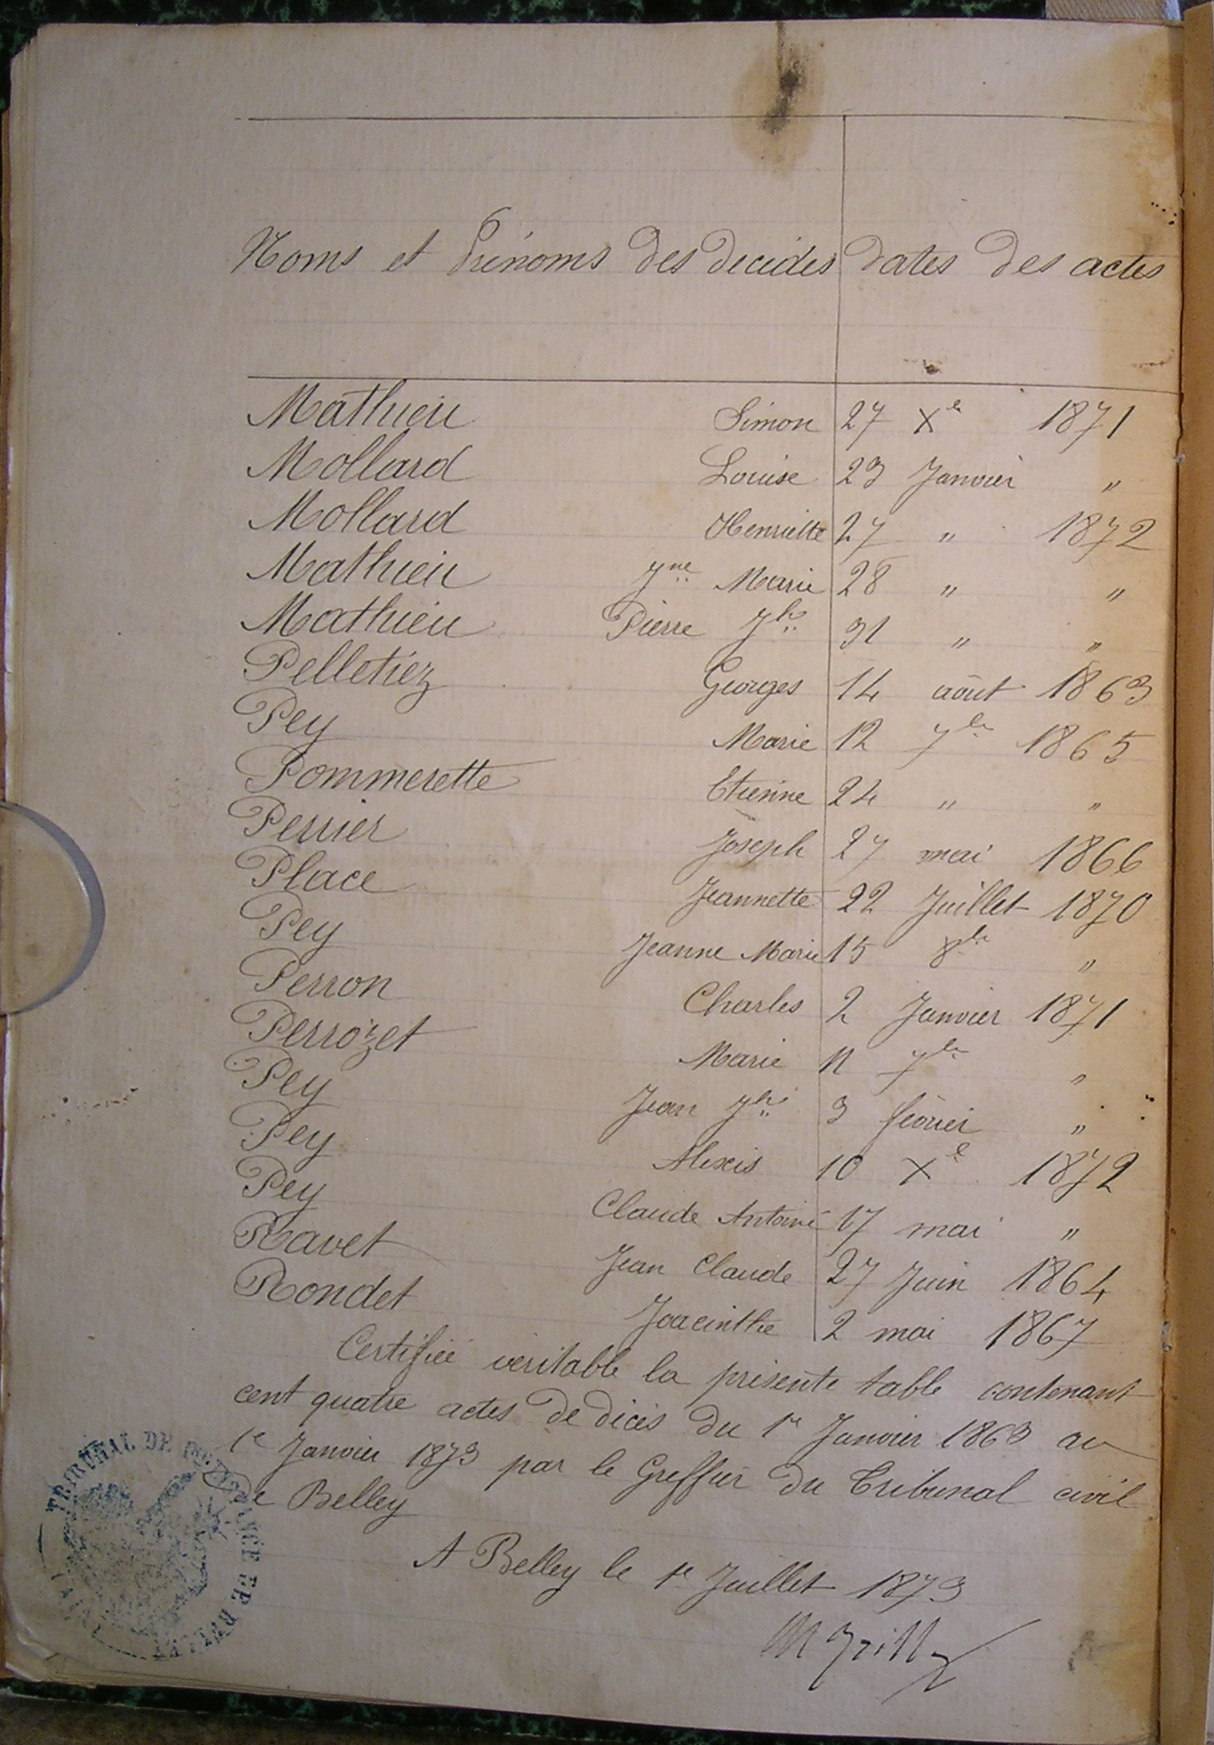 Noms et Prénoms des décédés dates des actes
Mathieu Simon 27 Xe 1871
Mollard Louise 23 Janvier "
Mollard Henriette 27 " 1872
Mathieu Jne Marie 28 " "
Mathieu Pierre Jh 31 " "
Pelletiez Georges 14 août 1863
Pey Marie 12 7bre 1865
Pommerette Etienne 24 " "
Perrier Joseph 27 mai 1866
Place Jeannette 22 Juillet 1870
Pey Jeanne Marie 15 8bre "
Perron Charles 2 Janvier 1871
Perrozet Marie 11 7bre "
Pey Jean Jh 3 février "
Pey Alexis 10 Xe 1872
Pey Claude Antoine 17 mai "
Ravet Jean Claude 27 Juin 1864
Rondet Jacinthe 2 mai 1867
Certifiée véritable la présente table contenant
cent quatre actes de décès du 1er Janvier 1863 au
1er Janvier 1873 par le Greffier du Tribunal civil
De Belley
A Belley le 1er Juillet 1873
TRIBUNAL DE 1ère INSTANCE DE BELLEY
(AIN)